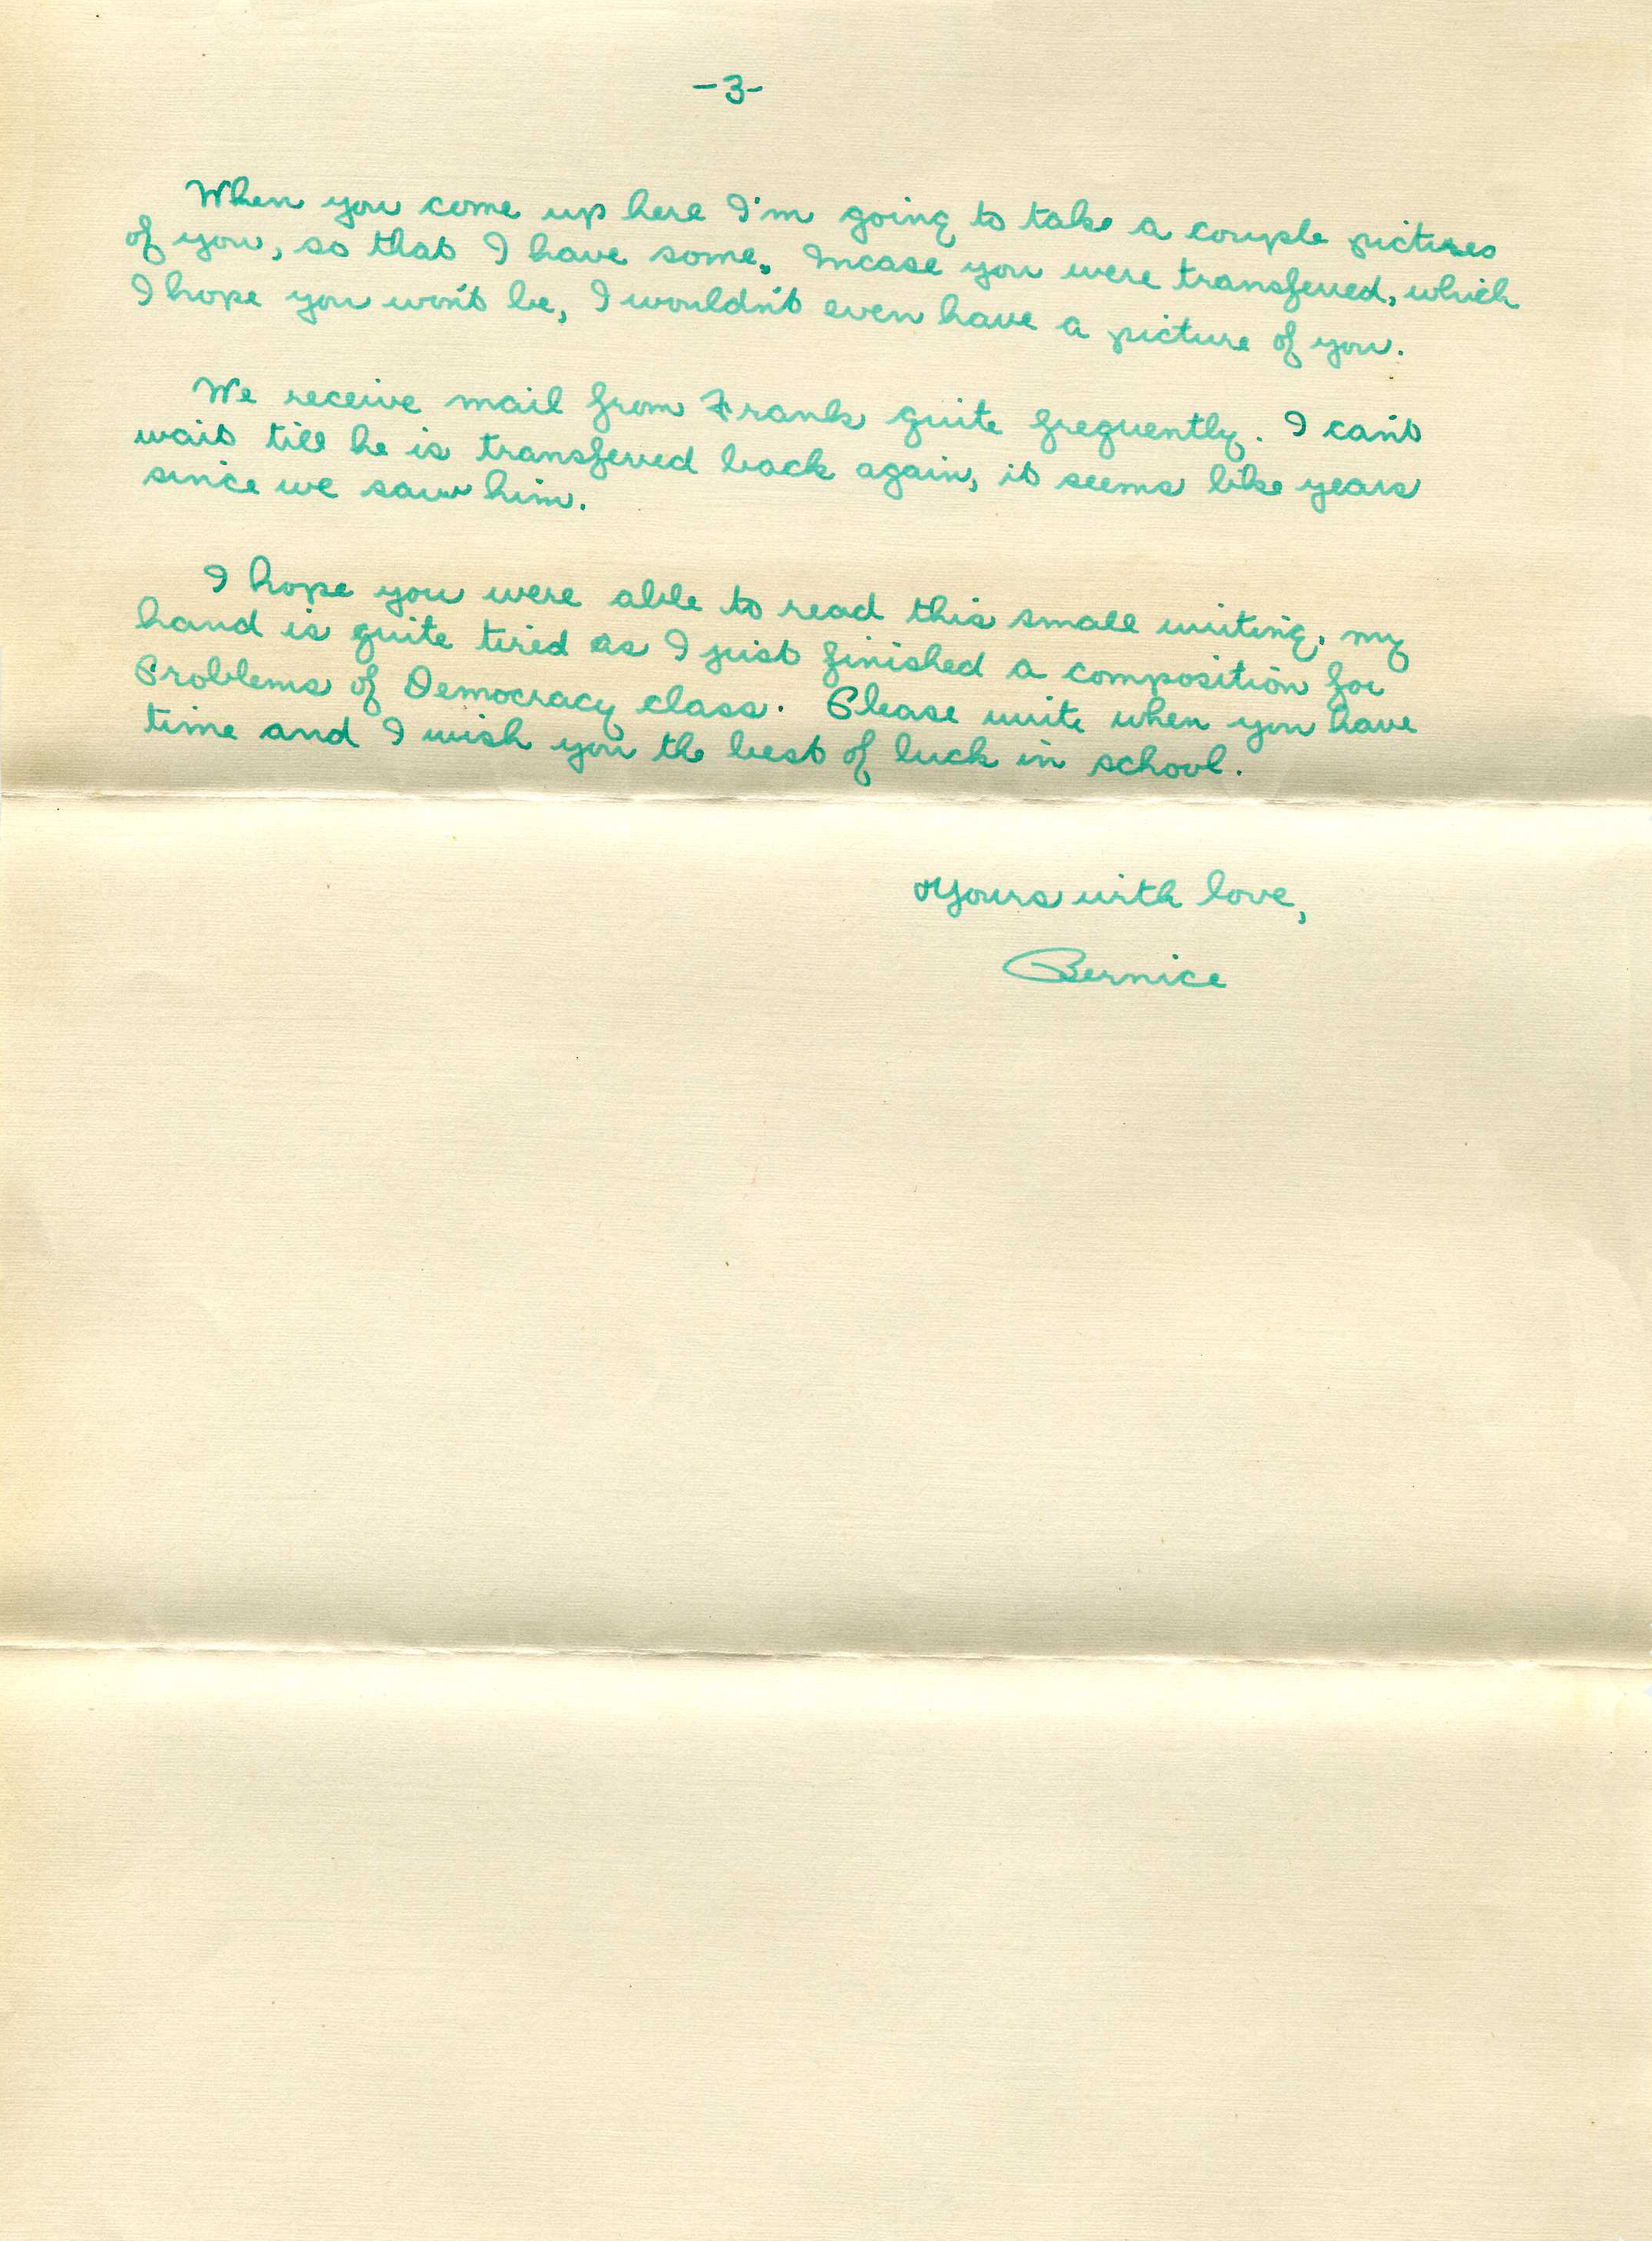 -3-
When you come up here I'm going to take a couple pictures
of you, so that I have some. Incase you were transfered, which
I hope you won't be, I wouldn't even have a picture of you.
We receive mail from Frank quite frequently. I can't
wait till he is transfered back again, it seems like years
since we saw him.
I hope you were able to read this small writing, my
hand is quite tired as I just finished a composition for
Problems of Democracy class. Please write when you have
time and I wish you the best of luck in school.
Yours with love,
Bernice